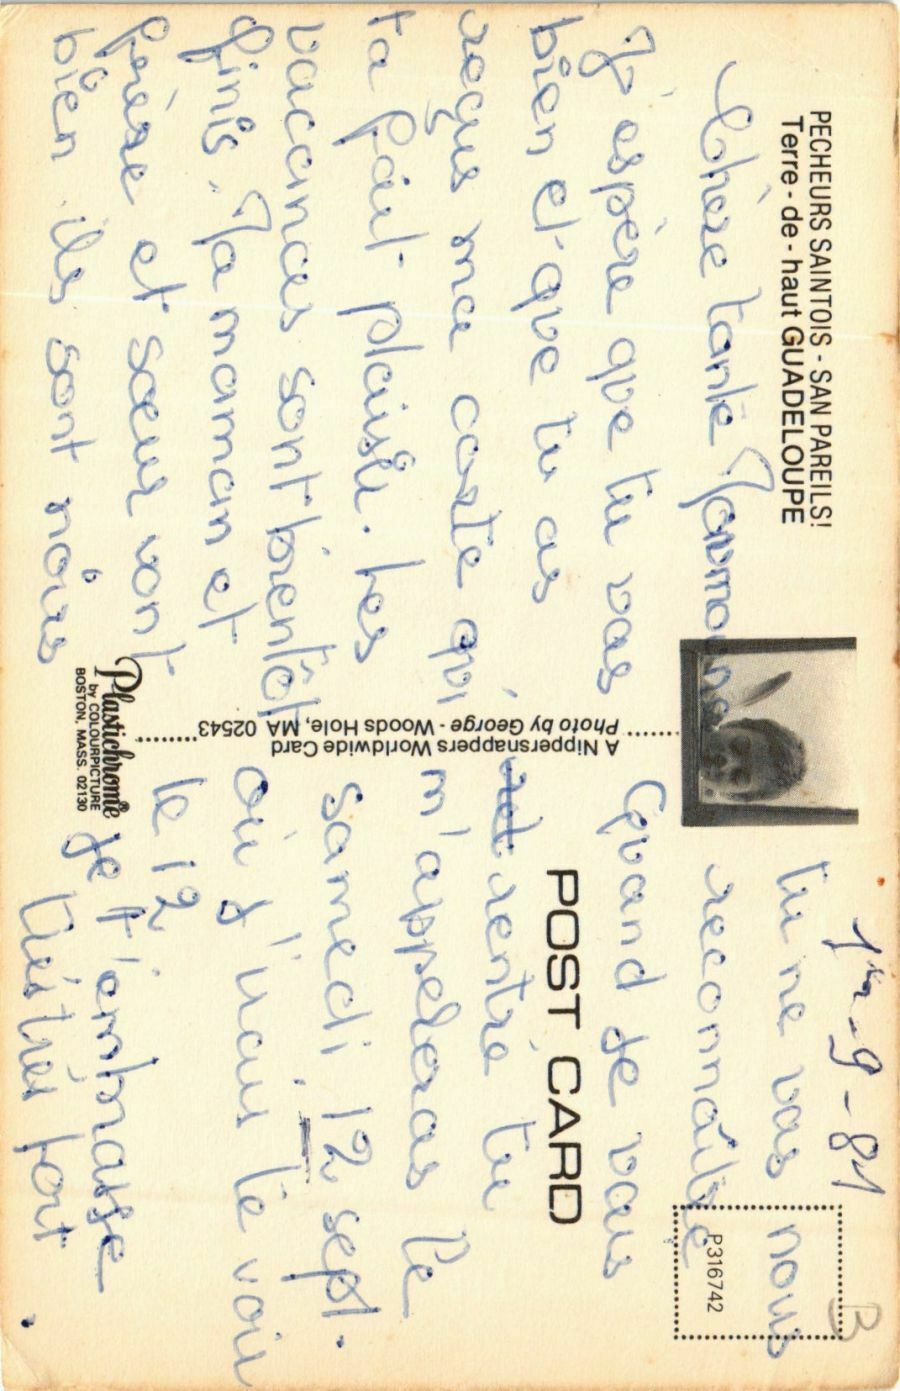 PECHEURS SAINTOIS - SAN PAREILS!
Terre - de - haut GUADELOUPE
Chère tante
J'espère que tu vas
bien et que tu as
reçus ma carte qui
ta fait plaisir. Les
vacances sont bientôt
finis. Ta maman et
frère et sœur vont
bien ils sont noirs
1er-9-81
tu ne vas nous
reconnaître
Quand je vais
rentré tu
m'appeleras le
samedi 12 sept.
où j'irais te voir
le 12
je t'embrasse
très très fort.
A Nippersnappers Worldwide Card
Photo by George - Woods Hole, MA 02543
Plastichrome®
by COLOURPICTURE
BOSTON, MASS. 02130
POST CARD
P316742
B